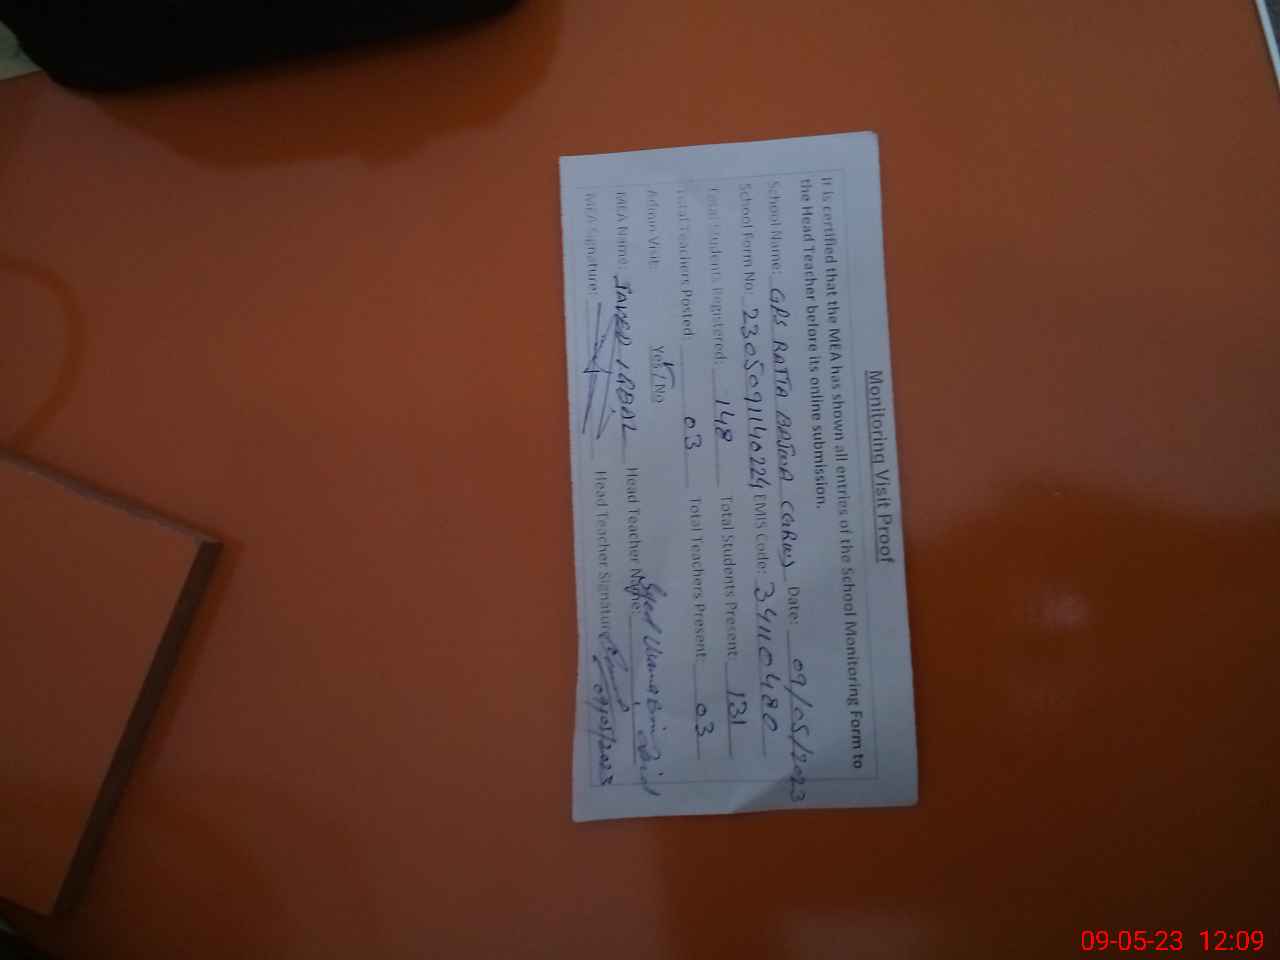 Monitoring Visit Proof
It is certified that the MEA has shown all entries of the School Monitoring Form to
the Head Teacher before its online submission.
School Name: GPS RATTA BAJWA Date: 09/05/2023
School Form No: 230509114022 EMIS Code: 34110480
Total Students Registered: 148 Total Students Present: 131
Total Teachers Posted: 03 Total Teachers Present: 03
Admin Visit: Yes / No
MEA Name: JAVED IQBAL Head Teacher Name: Syed Usama Bin
MEA Signature: Head Teacher Signature: 09/05/2023
09-05-23 12:09